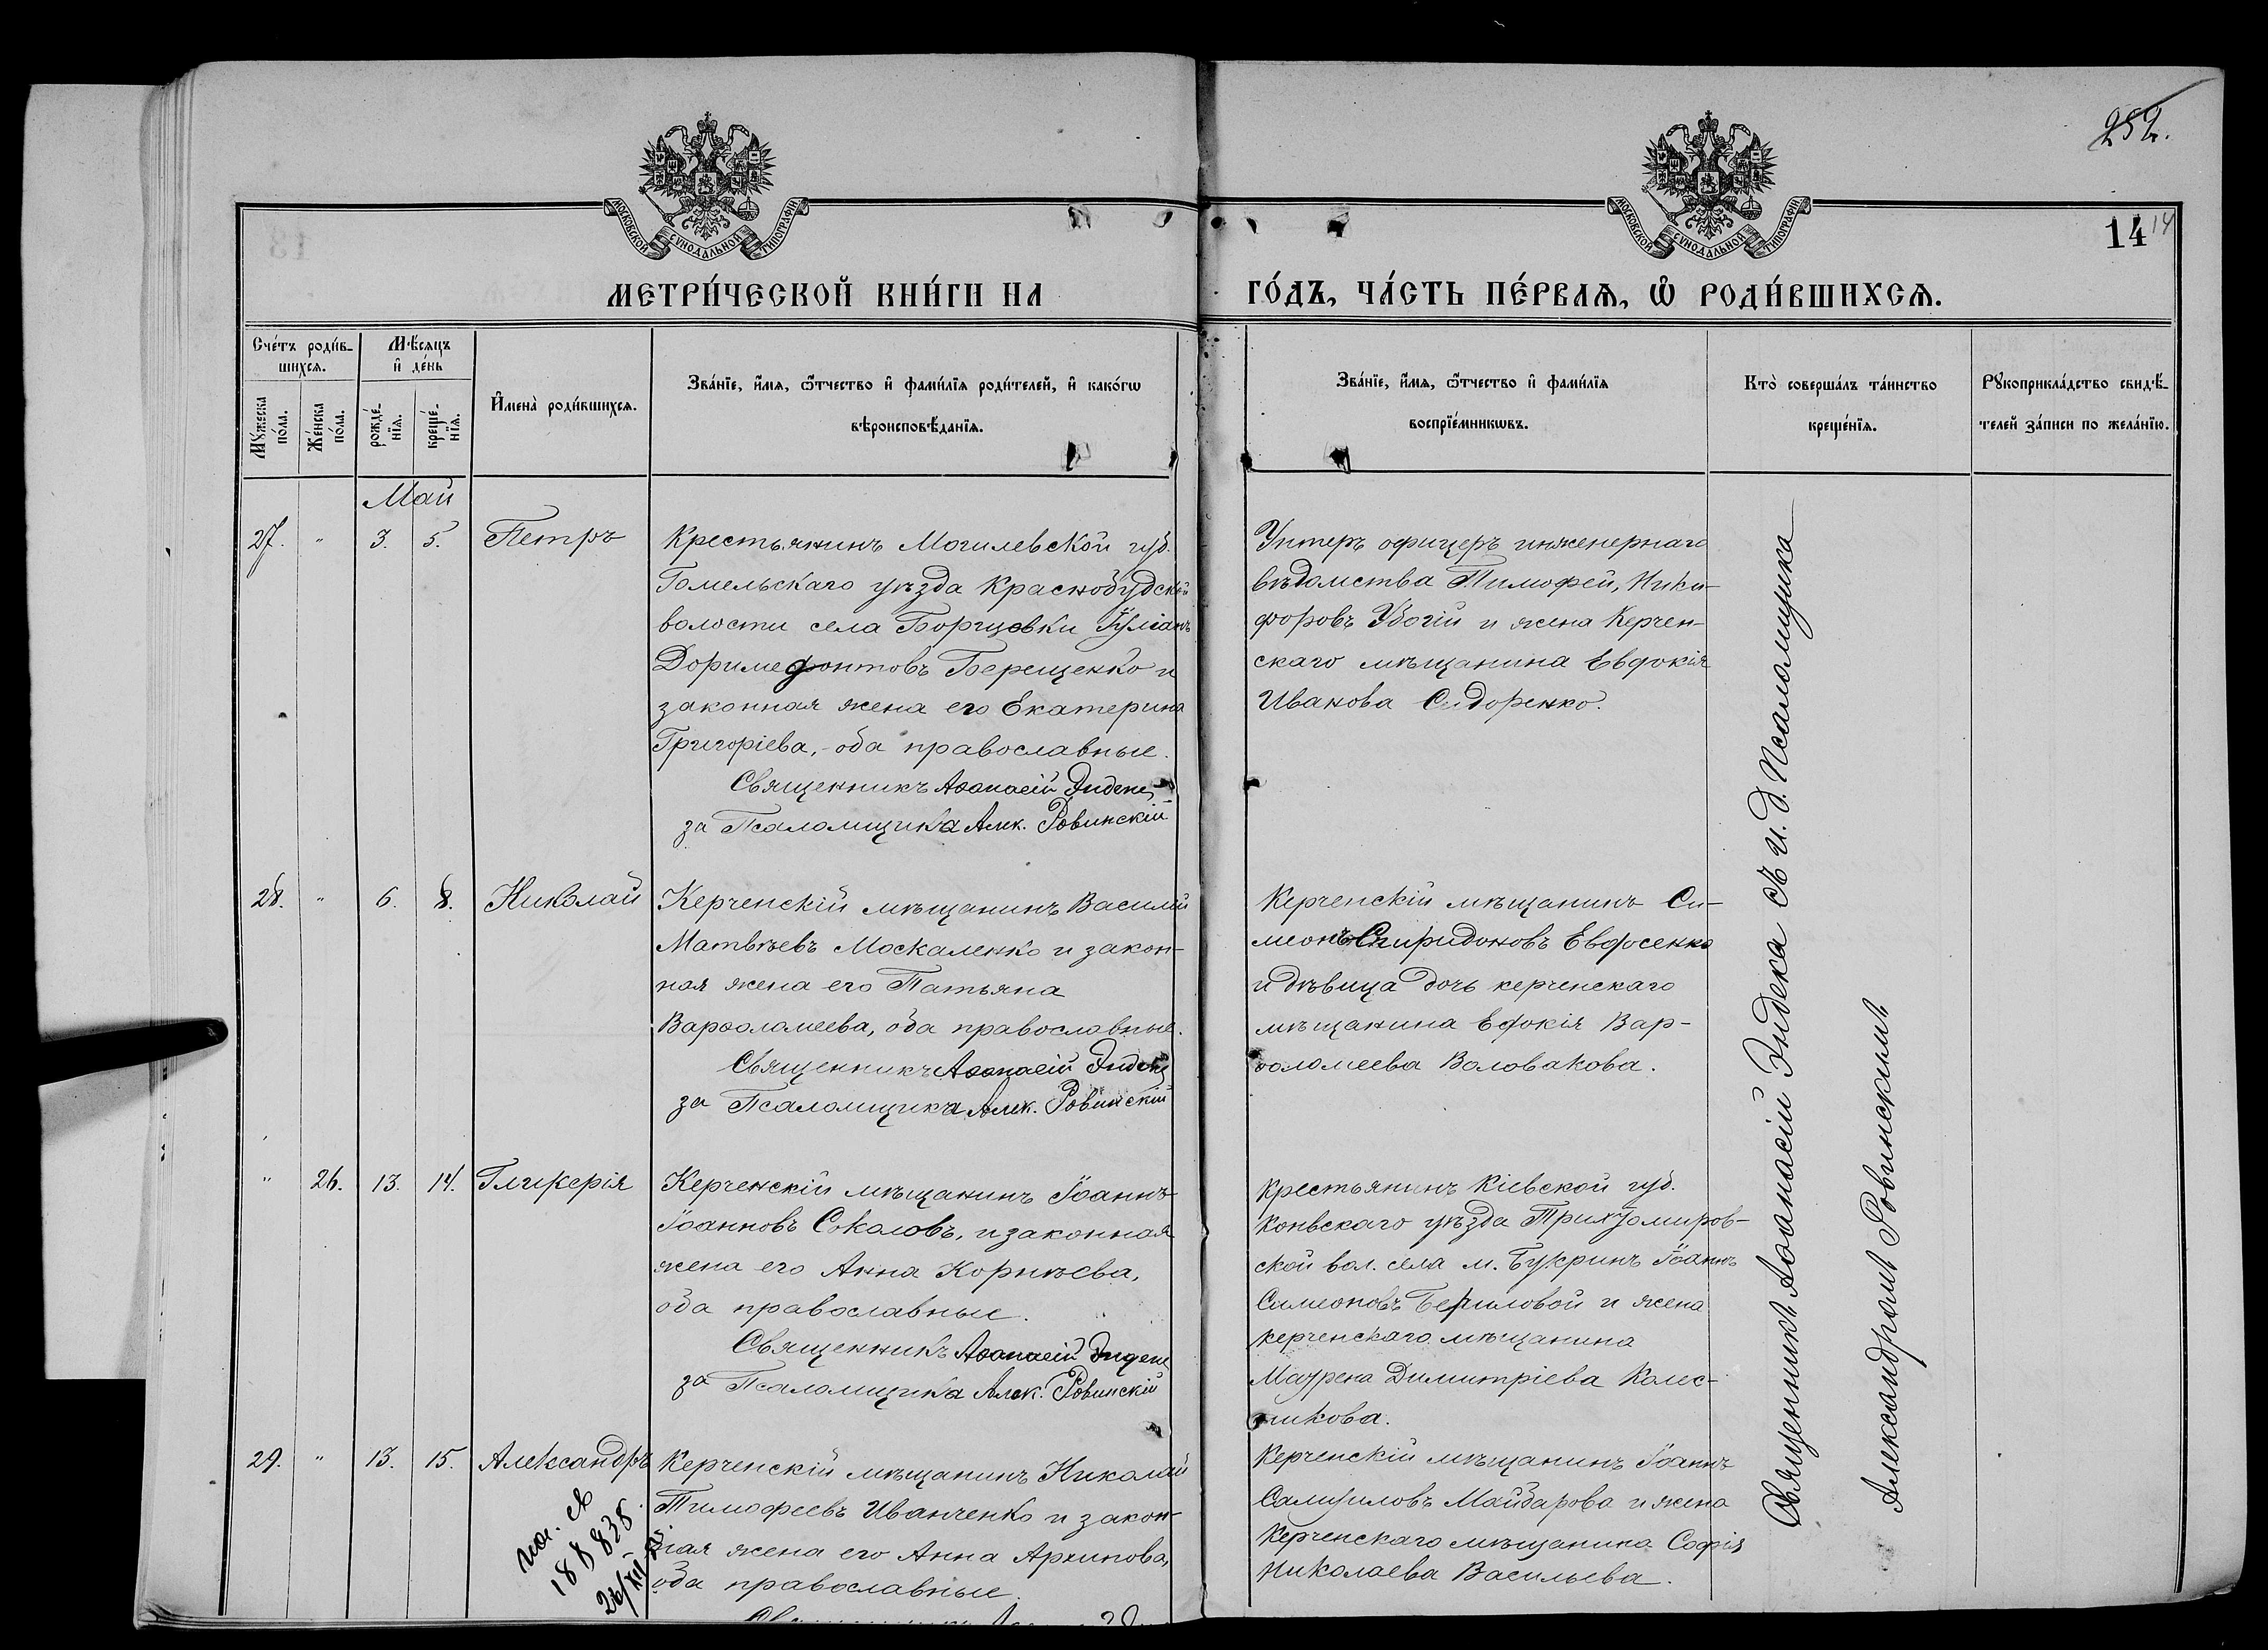 252.
14
14
МОСКОВСКОЙ СѴНОДАЛЬНОЙ ТИПОГРАФІИ
МОСКОВСКОЙ СѴНОДАЛЬНОЙ ТИПОГРАФІИ
МЕТРИ́ЧЕСКОЙ КНИ́ГИ НА
ГО́ДЪ, ЧА́СТЬ ПЕ́РВАѦ, Ѡ҆ РОДИ́ВШИХСѦ.
Сче́тъ роди́в-
шихсѧ.
Мѣ́сѧцъ
и҆ де́нь
Мꙋ́жеска
по́ла.
Же́нска
по́ла.
рожде́-
нїѧ.
креще́-
нїѧ.
И҆мена̀ роди́вшихсѧ.
Зва́нїе, и҆́мѧ, ѻ҆́тчество и҆ фами́лїѧ роди́телей, и҆ како́гѡ
вѣроисповѣ́данїѧ.
Зва́нїе, и҆́мѧ, ѻ҆́тчество и҆ фами́лїѧ
воспрїе́мникѡвъ.
Кто̀ соверша́лъ та́инство
креще́нїѧ.
Рꙋкоприкла́дство свидѣ́-
телей за́писи по жела́нїю.
Май
27. " 3. 5. Петръ
Крестьянинъ Могилевской губ.
Гомельскаго уѣзда Краснобудской
волости села Борщовки Іуліанъ
Доримефонтовъ Берещенко и
законная жена его Екатерина
Григоріева, - оба православные.
Священникъ Аѳанасій Эндека
за Псаломщика Алек. Ровинскій
Унтеръ офицеръ инженернаго
вѣдомства Тимофей, Ники-
форовъ Убогій и жена Керчен-
скаго мѣщанина Евфокія
Иванова Сидоренко.
28. " 6. 8. Николай
Керченскій мѣщанинъ Василій
Матвѣевъ Москаленко и закон-
ная жена его Татьяна
Варѳоломеева, оба православные.
Священникъ Аѳанасій Эндека
за Псаломщика Алек. Ровинскій
Керченскій мѣщанинъ Си-
меонъ Спиридоновъ Евфосенко
и дѣвица дочь керченскаго
мѣщанина Ефокія Вар-
ѳоломеева Воловакова.
" 26. 13. 14. Гликерія
Керченскій мѣщанинъ Іоаннъ
Іоанновъ Соколовъ, и законная
жена его Анна Корнѣева,
оба православные.
Священникъ Аѳанасій Эндека
за Псаломщика Алек. Ровинскій
Крестьянинъ Кіевской губ.
Конвскаго уѣзда Трихтомиров-
ской вол. села м. Букринъ Іоаннъ
Симеоновъ и жена
керченскаго мѣщанина
Маурена Димитріева Колес-
никова.
29. " 13. 15. Александръ
Керченскій мѣщанинъ Николай
Тимофеевъ Иванченко и закон-
ная жена его Анна Архипова,
оба православные.
188828.
26/XII
Керченскій мѣщанинъ Іоаннъ
Самуиловъ Майдарова и жена
Керченскаго мѣщанина Софія
Николаева Васильева.
Священникъ Аѳанасій Эндека съ и. д. Псаломщика
Александромъ Ровинскимъ